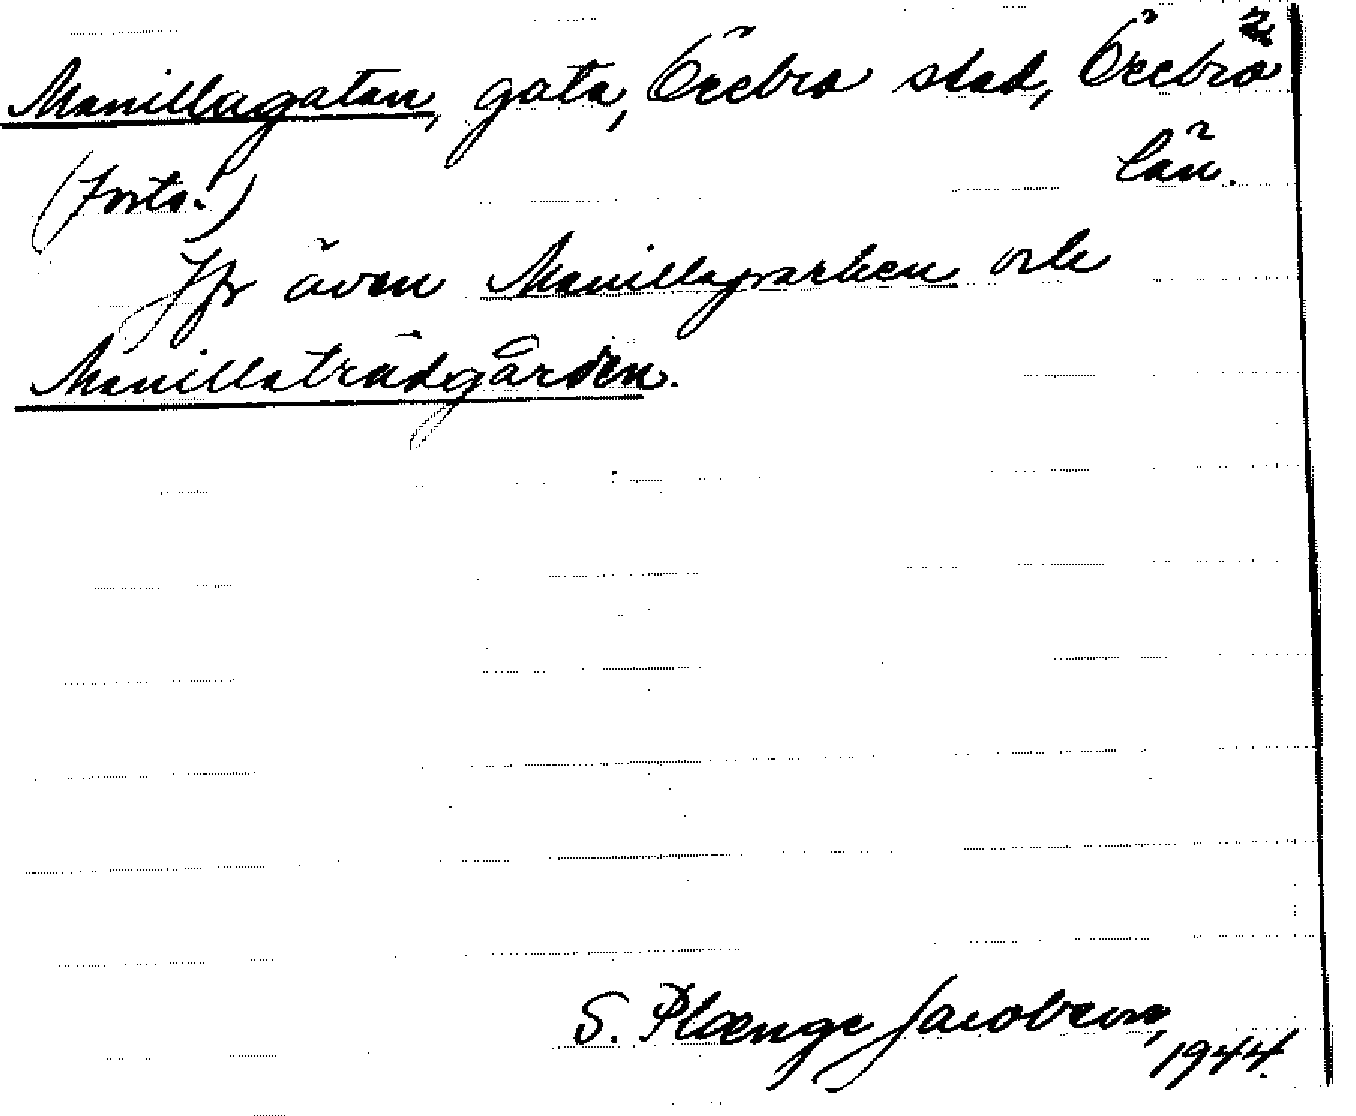 2.
Manillagatan, gata, Örebro stad, Örebro
län.
(Forts.)
Jfr även Manillaparken och
Manillaträdgården.
S. Plænge Jacobson,
1944.